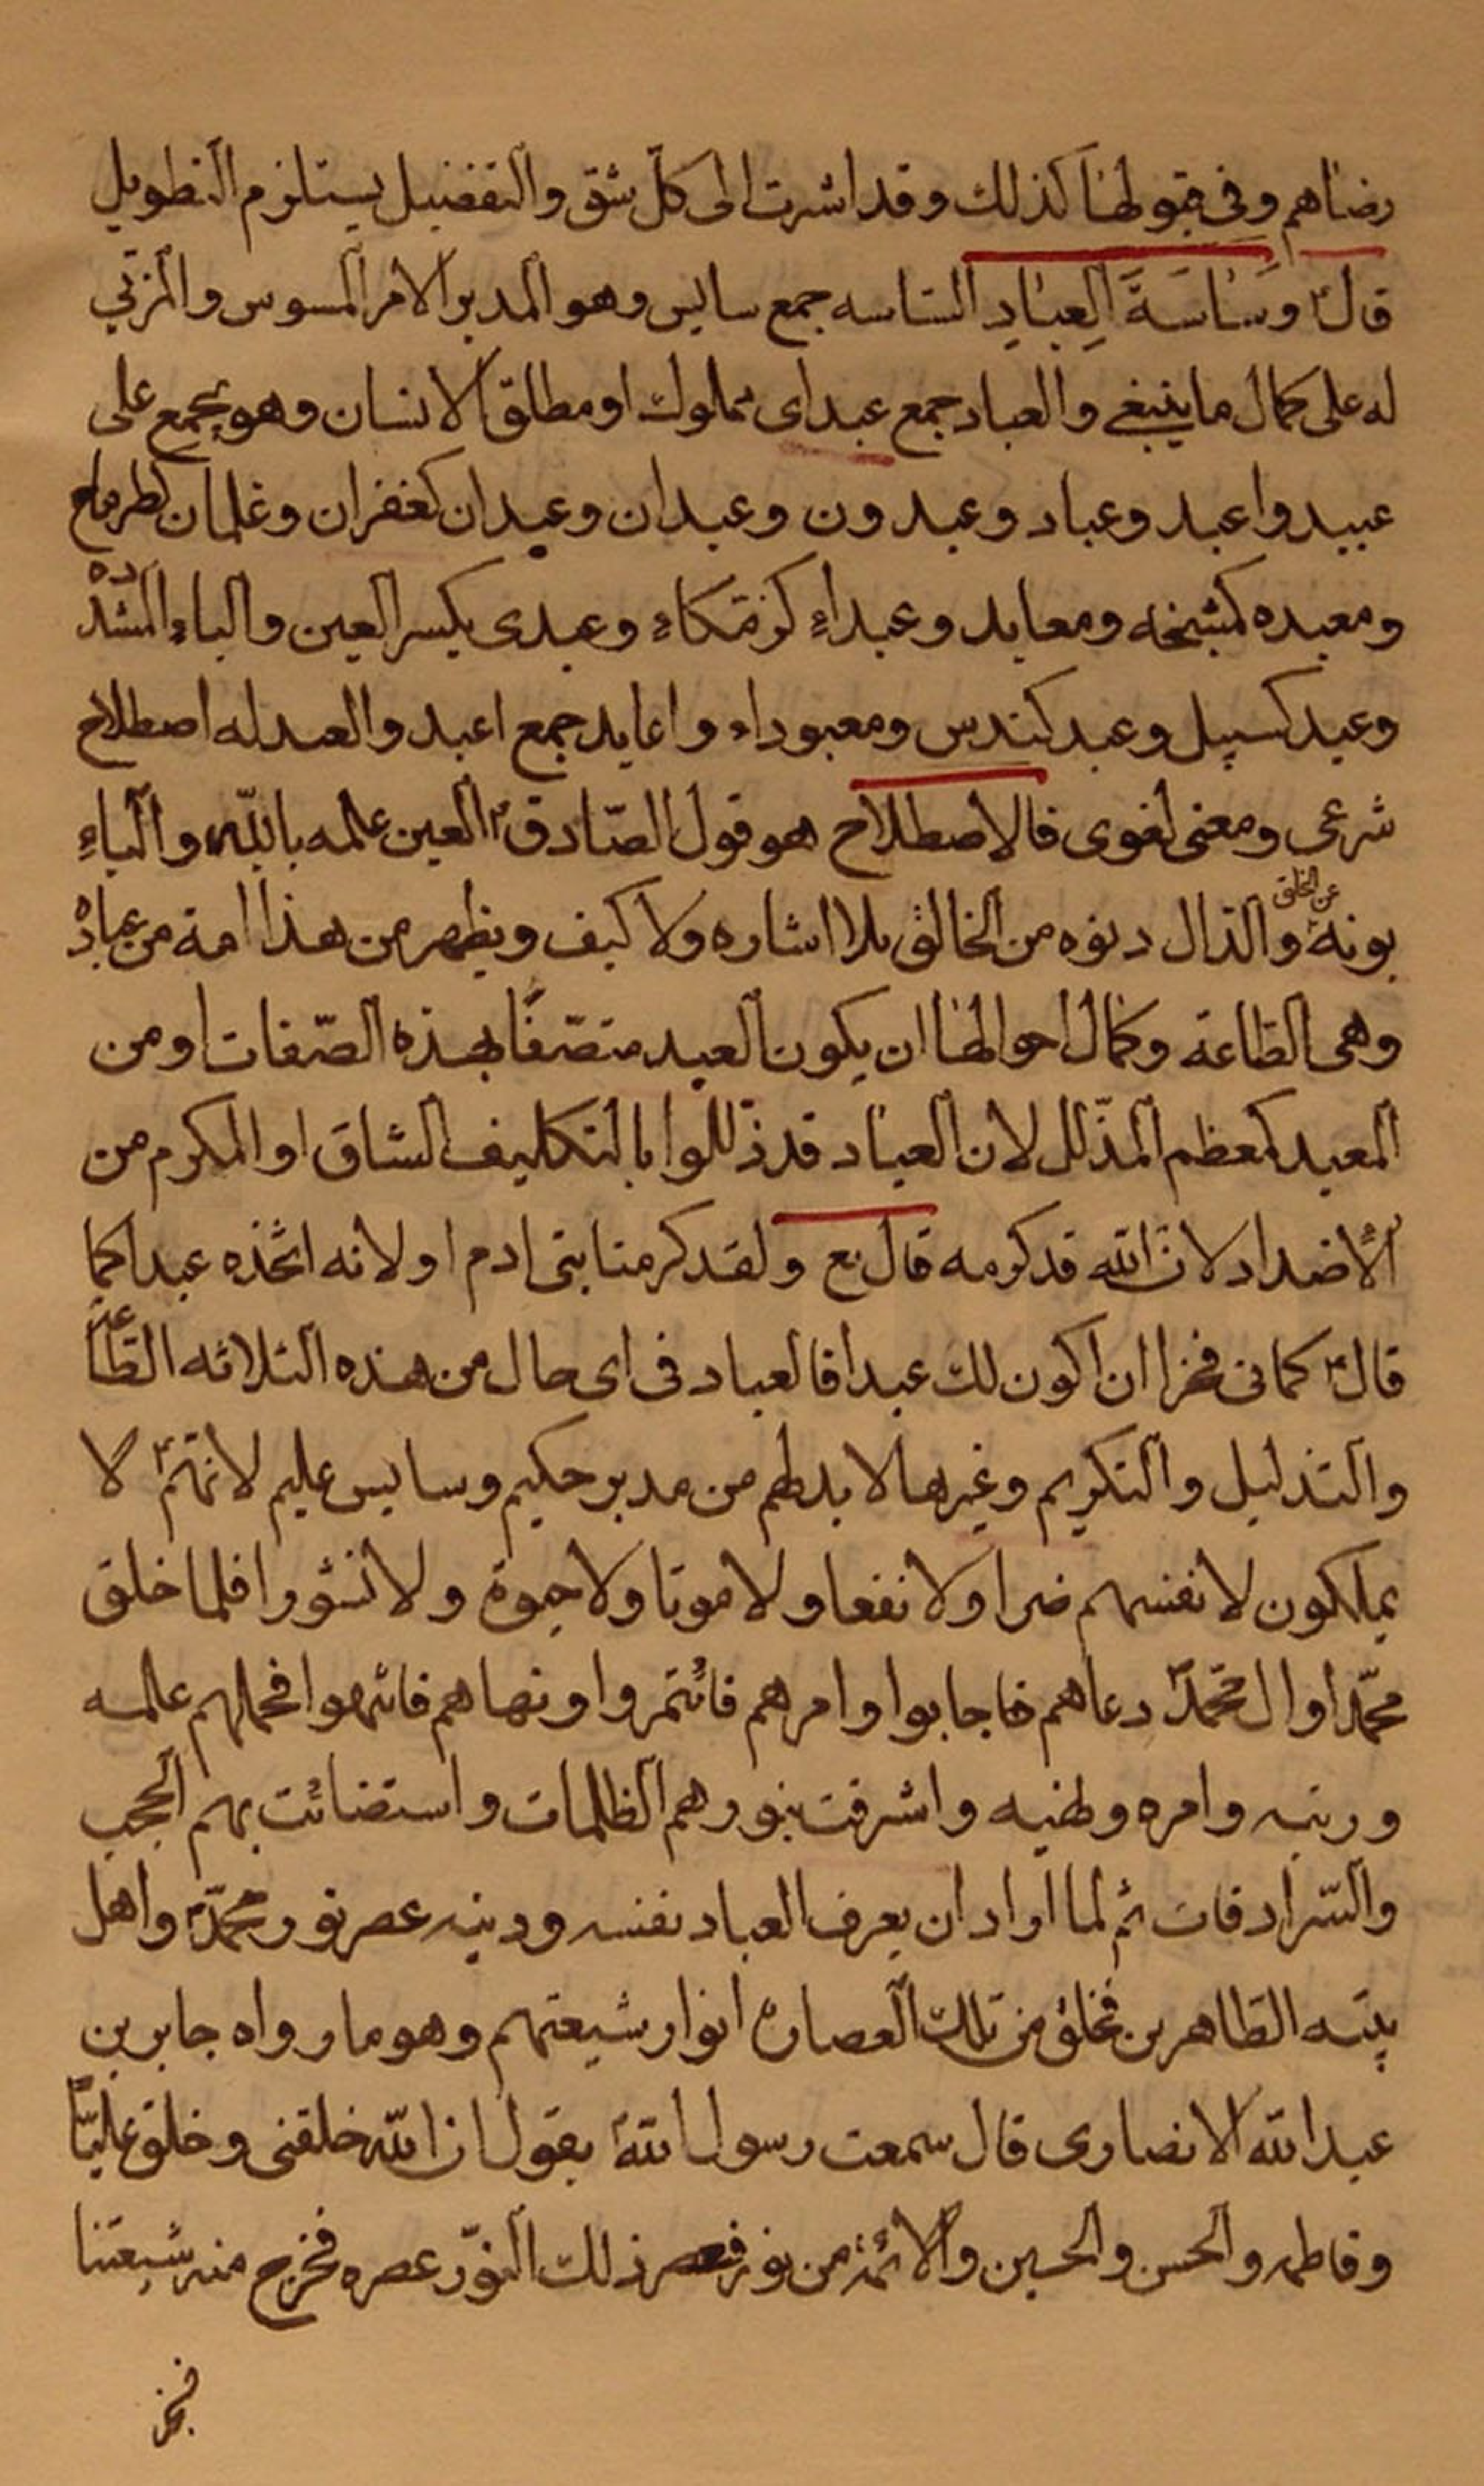 رضاهم وفي قبولها كذلك وقد اشرت الى كلّ شق والتفضيل يستلزم التطويل
قالؑ وَسَاسَةَ الْعِبَادِ الساسه جمع سايس وهو المدبر الامر المسوس والمربّي
له على كمال ما ينبغي والعباد جمع عبد اى مملوك او مطلق الانسان وهو يجمع على
عبيد واعبد وعباد وعبدون وعبدان وعبدان كغفران وغلمان كطرماح
ومعبده كمشيخه ومعابد وعبداء كزمكاء وعبدى بكسر العين والباء المشدّده
وعبد كسبيل وعبد كندس ومعبوداء واعابد جمع اعبد والعبد له اصطلاح
شرعى ومعنى لغوى فالاصطلاح هو قول الصّادقؑ العين علمه باللّه والباء
بونه عن الخلق والدال دنوه من الخالق بلا اشاره ولا كيف ويظهر من هذا انه من عباده
وهى الطاعة وكمال احوالها ان يكون العبد متصّفًا بهذه الصّفات او من
المعبد كمعظم المذّلل لان العباد قد ذللوا بالتكليف الشاق او المكرم من
الأضداد لان اللّه قد كرمه قال تع ولقد كرمنا بنى ادم او لانه اتّخذه عبدا كما
قالؑ كفانى فخرا ان اكون لك عبدا فالعباد فى اى حال من هذه الثلاثه الطّاعة
والتذليل والتكريم وغيرها لا بد لهم من مدبر حكيم وسايس عليم لانّهمؑ لا
يملكون لانفسهم ضرا ولا نفعا ولا موتا ولا حيوة ولا نشورا فلما خلق
محمّدا وال محمّدؐ دعاهم فاجابوا وامرهم فائتمروا ونهاهم فانتهوا فحملهم علمه
ودينه وامره ونهيه واشرقت بنورهم الظلمات واستضائت بهم الحجب
والسّرادقات ثم لما اراد ان يعرف العباد نفسه ودينه عصر نور محمّدؐ واهل
بيته الطاهرين فخلق من تلك العصارة انوار شيعتهم وهو ما رواه جابر بن
عبد اللّه الانصارى قال سمعت رسول اللّهؐ يقول ان اللّه خلقنى وخلق عليّاً
وفاطمه والحسن والحسين والائمّةؑ من نور فعصر ذلك النوّر عصره فخرج منه شيعتنا